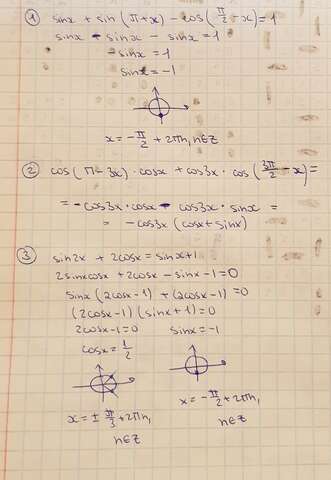 ① sinx + sin(π+x) - cos(π/2 - x) = 1
sinx - sinx - sinx = 1
-sinx = 1
sinx = -1
x = -π/2 + 2πn, n∈Z
② cos(π-3x)·cosx + cos3x·cos(3π/2 - x) =
= -cos3x·cosx - cos3x·sinx =
= -cos3x(cosx+sinx)
③ sin2x + 2cosx = sinx+1
2sinxcosx + 2cosx - sinx - 1 = 0
sinx(2cosx-1) + (2cosx-1) = 0
(2cosx-1)(sinx+1) = 0
2cosx-1=0 sinx=-1
cosx = 1/2
x = ± π/3 + 2πn,
n∈Z
x = -π/2 + 2πn,
n∈Z